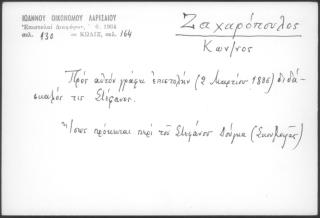 ΙΩΑΝΝΟΥ ΟΙΚΟΝΟΜΟΥ ΛΑΡΙΣΑΙΟΥ
"Επιστολαί Διαφόρων, Ἀ. 1964
σελ. 130 — ΚΩΔΙΞ, σελ. 164
Ζαχαρόπουλος
Κων/νος
Προς αὐτόν γράφει ἐπιστολήν (2 Μαρτίου 1806) διδά-
σκαλός τις Στέφανος.
Ἴσως πρόκειται περί τοῦ Στεφάνου Δούγκα (Σκουβαρᾶς)